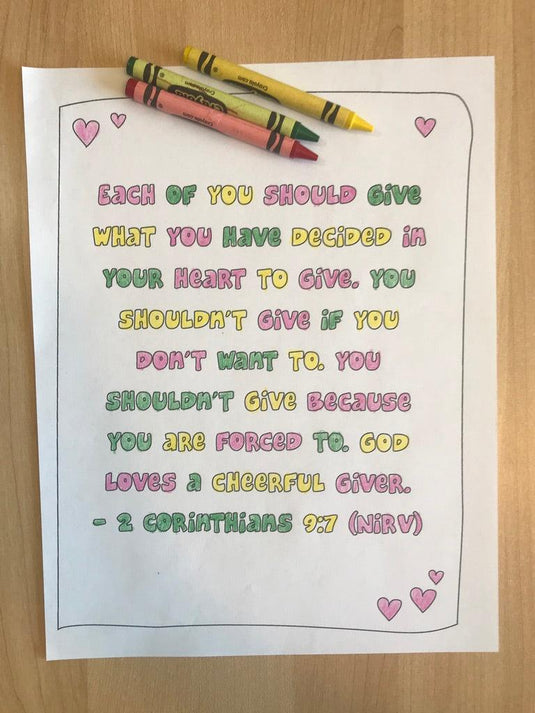 Crayola.com
Crayola
EACH OF YOU SHOULD GIVE
WHAT YOU HAVE DECIDED IN
YOUR HEART TO GIVE. YOU
SHOULDN'T GIVE IF YOU
DON'T WANT TO. YOU
SHOULDN'T GIVE BECAUSE
YOU ARE FORCED TO. GOD
LOVES A CHEERFUL GIVER.
- 2 CORINTHIANS 9:7 (NIRV)